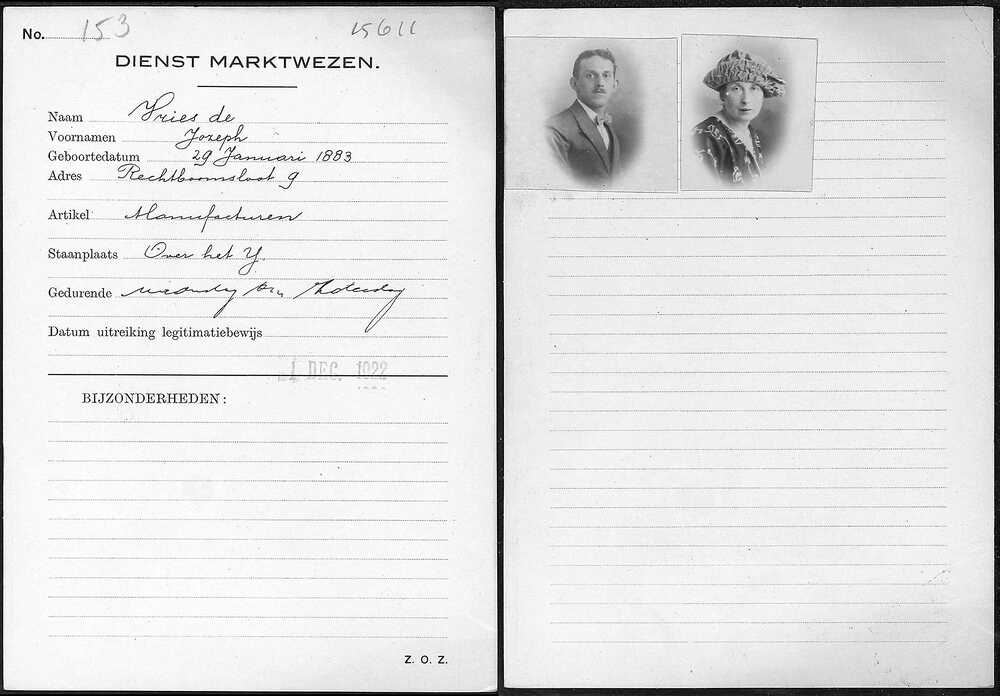 No. 153 15611
DIENST MARKTWEZEN.
Naam Vries de
Voornamen Jozeph
Geboortedatum 29 Januari 1883
Adres Rechtboomsloot 9
Artikel Manufacturen
Staanplaats Over het Y.
Gedurende maandag t/m Zaterdag
Datum uitreiking legitimatiebewijs
1 DEC. 1922
BIJZONDERHEDEN:
Z. O. Z.